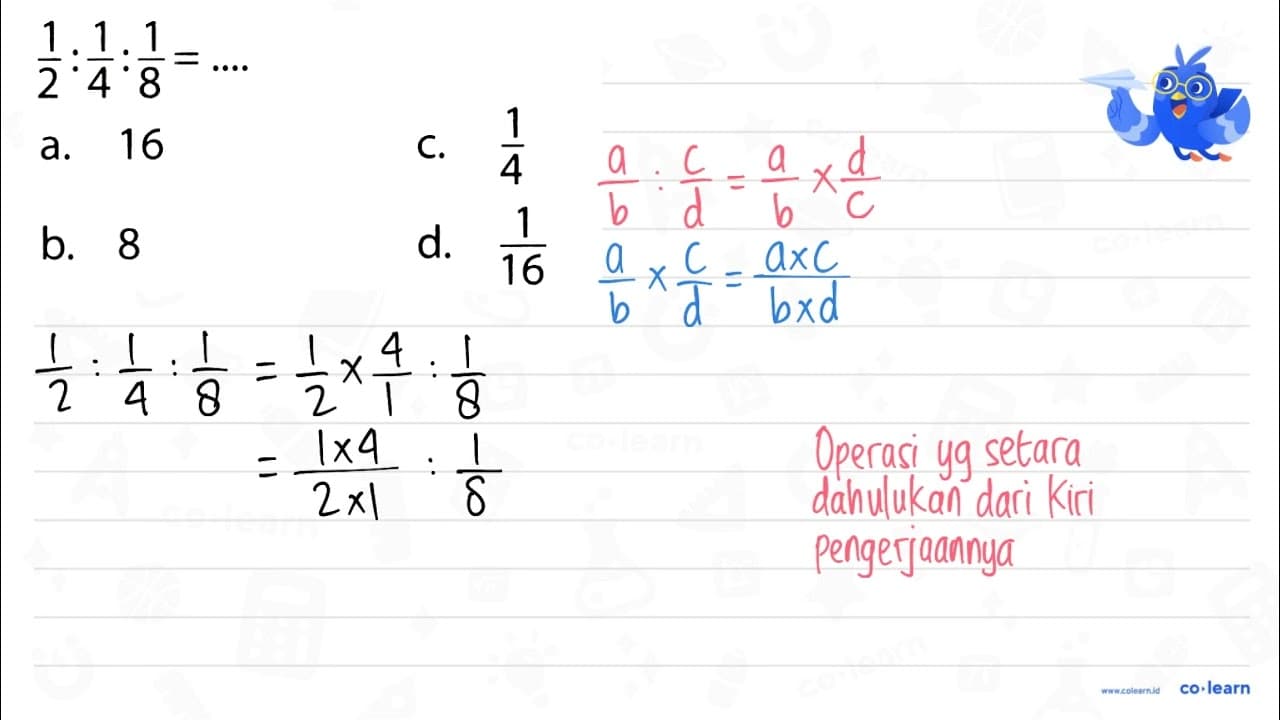 1/2 : 1/4 : 1/8 = ....
a. 16
c. 1/4
b. 8
d. 1/16
a/b : c/d = a/b × d/c
a/b × c/d = a×c/b×d
1/2 : 1/4 : 1/8 = 1/2 × 4/1 : 1/8
= 1×4/2×1 : 1/8
Operasi yg setara
dahulukan dari Kiri
pengerjaannya
www.colearn.id co·learn